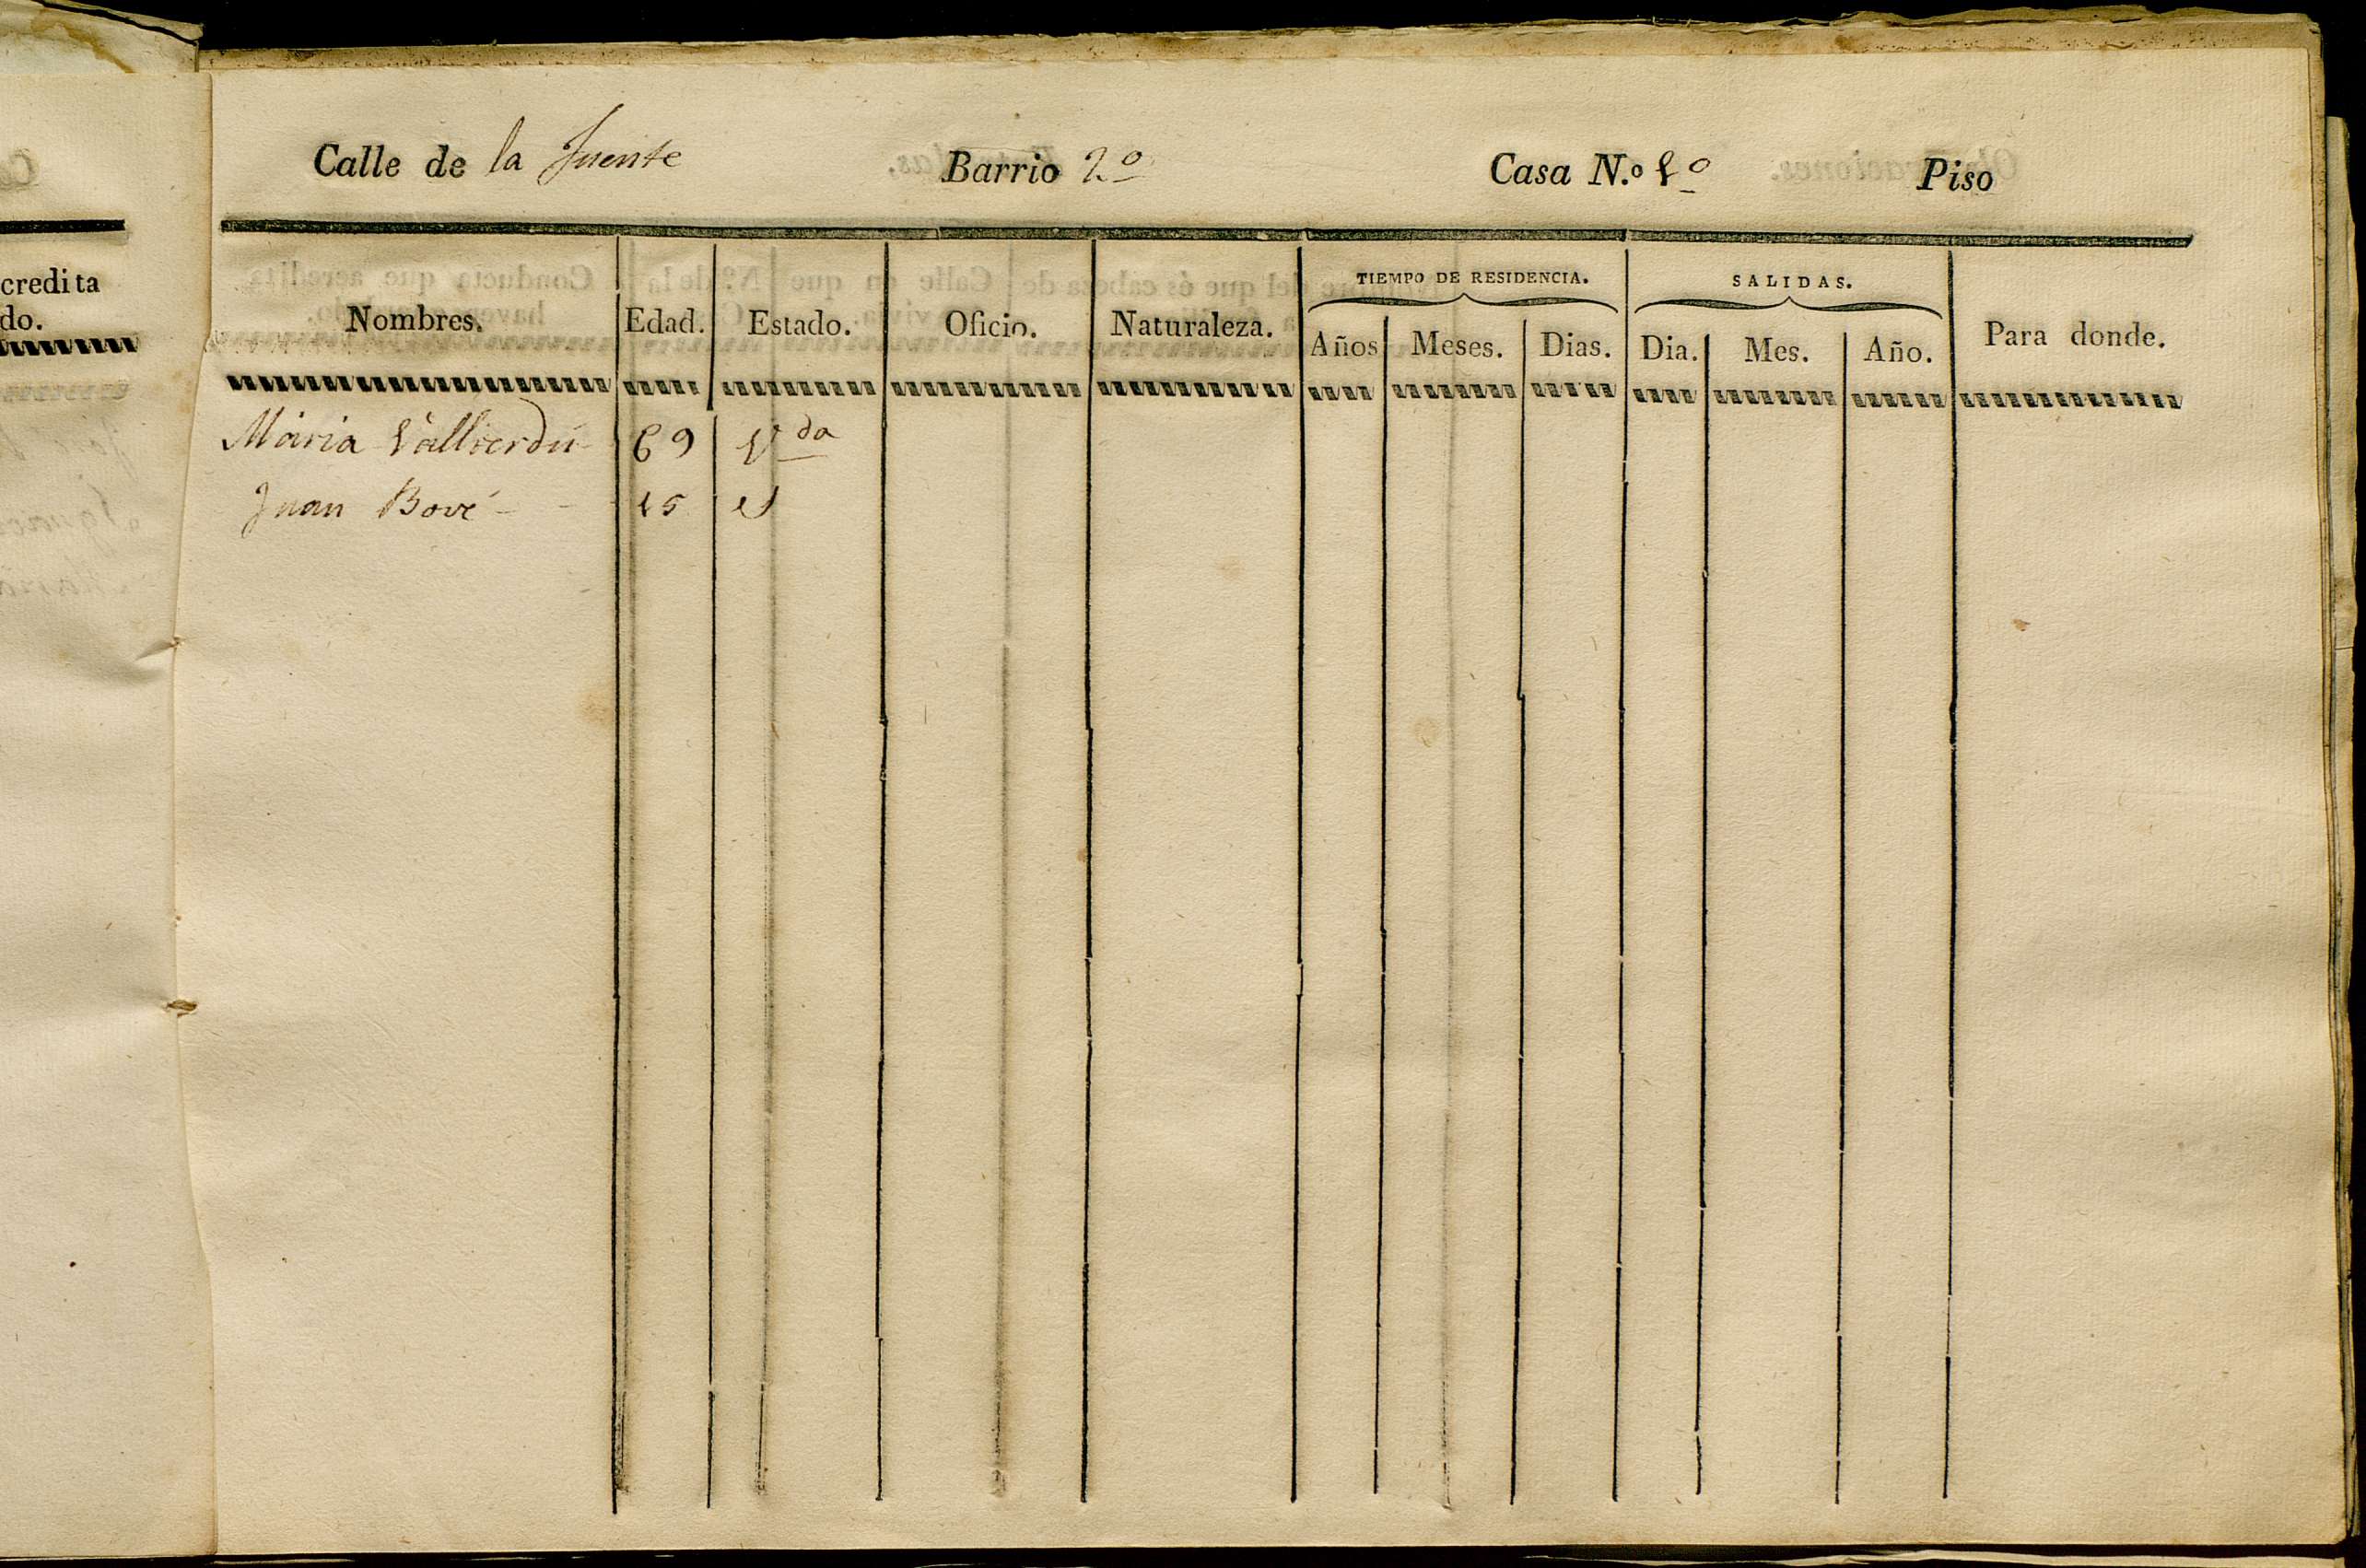 credita
do.
Calle de la fuente Barrio 2º Casa N.º 1º Piso
TIEMPO DE RESIDENCIA. SALIDAS.
Nombres. Edad. Estado. Oficio. Naturaleza. Años Meses. Dias. Dia. Mes. Año. Para donde.
Maria Vallverdú 69 Vda
Juan Bové 15 st